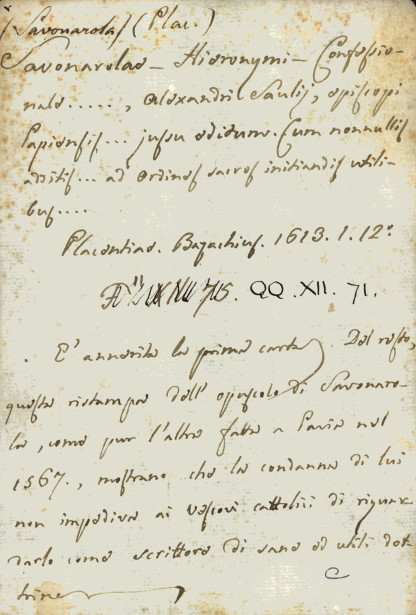 (Savonarola) (Plac.)
Savonarolae - Hieronymi - Confessio-
nale ....., Alexandri Saulij, episcopi
Papiensis ... jussu editum. Cum nonnullis
additis ... ad Ordines sacros initiandis utili-
bus ....
Placentiae. Bazachius. 1613. 1. 12º
QQ. XII. 71.
. E' annerita la prima carta. Del resto,
questa ristampa dell' opuscolo di Savonaro-
la, come pur l'altra fatta a Pavia nel
1567., mostrano che la condanna di lui
non impediva ai vescovi cattolici di riguar-
darlo come scrittore di sane ed utili dot-
trine